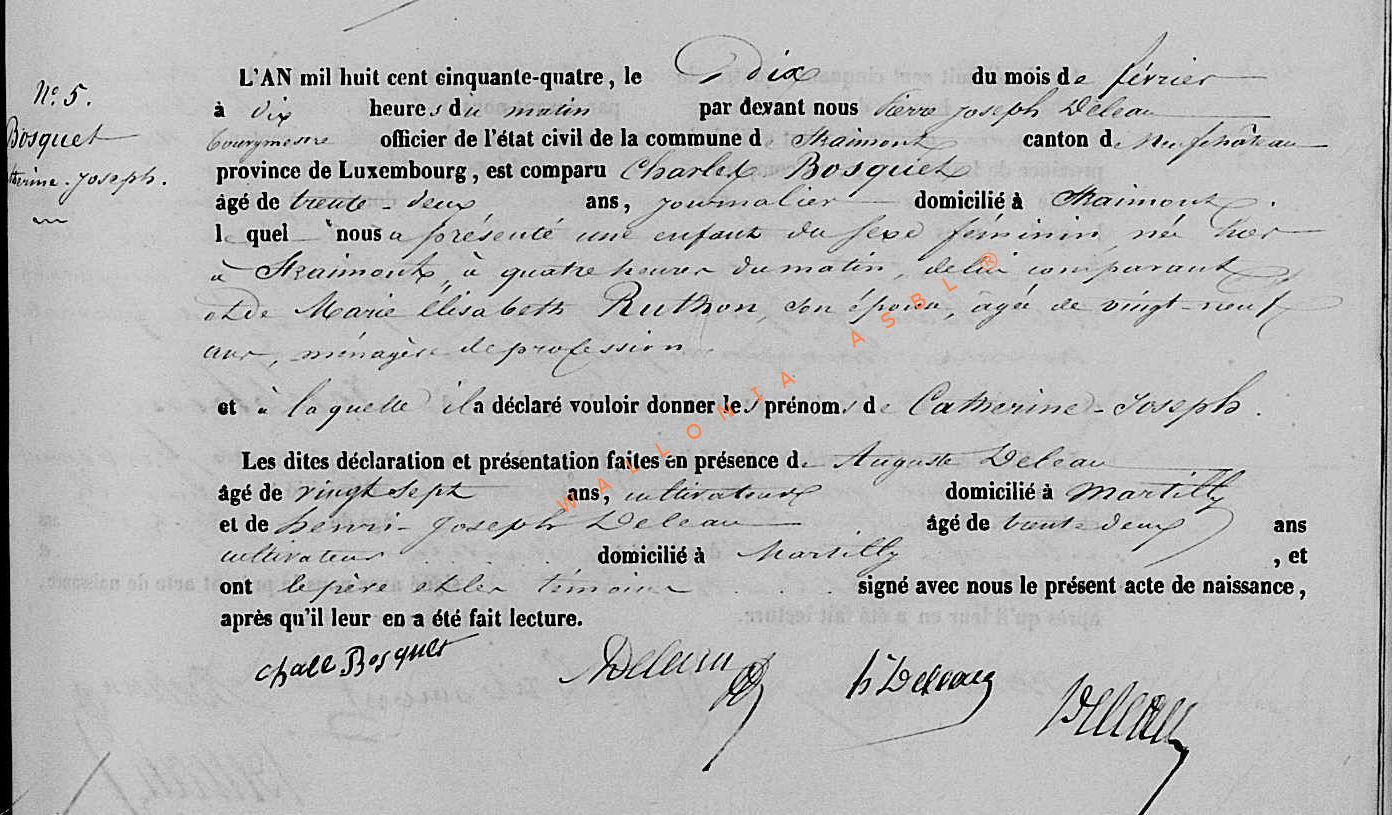 L'AN mil huit cent cinquante-quatre, le dix du mois de février
N° 5.
à dix heures du matin par devant nous Pierre Joseph Deleau
Bosquet
bourgmestre officier de l'état civil de la commune d Straimont canton de Neufchâteau
province de Luxembourg, est comparu Charles Bosquet
therine-Joseph.
âgé de trente-deux ans, journalier domicilié à Straimont.
lequel nous a présenté une enfant du sexe féminin, née hier
à Straimont, à quatre heures du matin, de lui comparant
et de Marie Élisabeth Ruthon, son épouse, âgée de vingt-neuf
ans, ménagère de profession
et à laquelle il a déclaré vouloir donner les prénoms de Catherine-Joseph.
Les dites déclaration et présentation faites en présence de Auguste Deleau
âgé de vingt sept ans, cultivateur domicilié à Martilly
et de henri-Joseph Deleau âgé de trente deux ans
cultivateur domicilié à Martilly, et
ont le père et les témoins signé avec nous le présent acte de naissance,
après qu'il leur en a été fait lecture.
Bosquet Deleau Deleau
WALLONIA ASBL ®